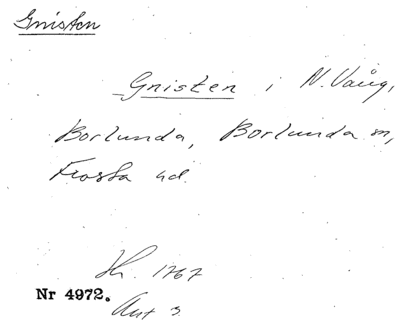 Gnisten
Gnisten i N. Vång,
Borlunda, Borlunda sn,
Frosta hd.
1767
Nr 4972.
Akt 3